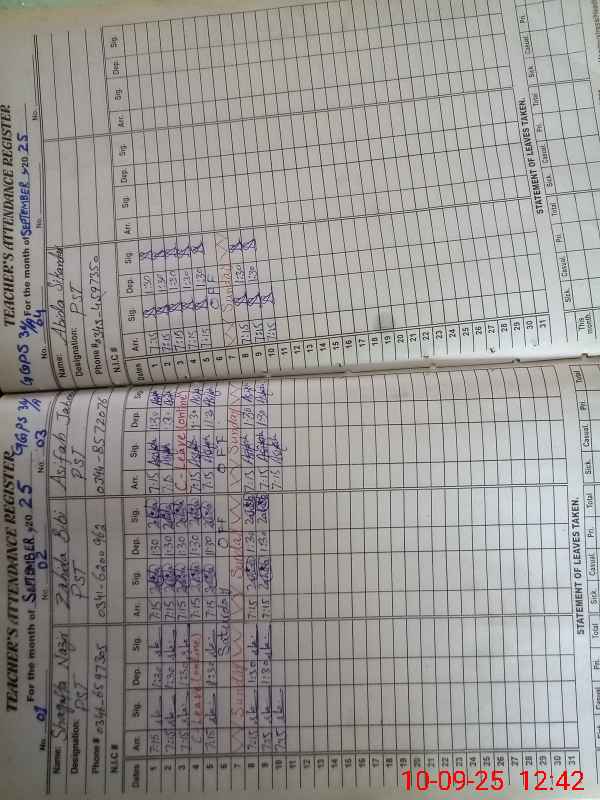 TEACHER'S ATTENDANCE REGISTER
For the month of SEPTEMBER 2025
GGPS 34/A
No. 01 No. 02 No. 03
Name: Shagufta Nazir Zahida Bibi Asifah Jahan
Designation: PST PST PST
Phone # 0346-8597305 0341-6200962 0344-8572076
N.I.C #
Dates Arr. Sig. Dep. Sig. Arr. Sig. Dep. Sig. Arr. Sig. Dep. Sig.
1 7:15 1:30 7:15 1:30 7:15 1:30
2 7:15 1:30 7:15 1:30 7:15 1:30
3 7:15 1:30 7:15 1:30 C-Leave (ontime)
4 C-Leave (ontime) 7:15 1:30 7:15 1:30
5 7:15 11:30 7:15 11:30 7:15 11:30
6 Saturday OFF OFF
7 Sunday Sunday Sunday
8 7:15 1:30 7:15 1:30 7:15 1:30
9 7:15 1:30 7:15 1:30 7:15 1:30
10 7:15 7:15
11
12
13
14
15
16
17
18
19
20
21
22
23
24
25
26
27
28
29
30
31
STATEMENT OF LEAVES TAKEN.
Sick. Casual. Pri. Total
TEACHER'S ATTENDANCE REGISTER
GGPS 34/A For the month of SEPTEMBER 2025
No. 04 No. No.
Name: Abida Sikandar
Designation: PST
Phone # 0348-4597350
N.I.C #
Dates Arr. Sig. Dep. Sig. Arr. Sig. Dep. Sig. Arr. Sig. Dep. Sig.
1 7:15 1:30
2 7:15 1:30
3 7:15 1:30
4 7:15 1:30
5 7:15 11:30
6 OFF
7 Sunday
8 7:15 1:30
9 7:15 1:30
10 7:15
11
12
13
14
15
16
17
18
19
20
21
22
23
24
25
26
27
28
29
30
31
STATEMENT OF LEAVES TAKEN.
Sick. Casual. Pri. Total Sick. Casual. Pri. Total Sick. Casual. Pri.
This month.
10-09-25 12:42